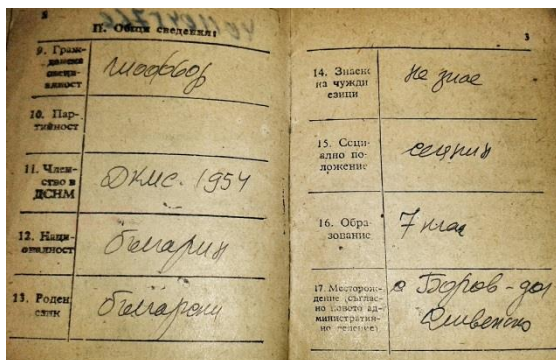 II. Общи сведения:
9. Граж-
данска
специ-
алност
шофьор
10. Пар-
тийност
11. Член-
ство в
ДСНМ
ДКМС. 1954
12. Наци-
оналност
българин
13. Роден
език
български
3
14. Знаене
на чужди
езици
не знае
15. Соци-
ално по-
ложение
селянин
16. Обра-
зование
7 клас
17. Месторож-
дение (съглас-
но новото ад-
министратив-
но деление)
с Боров-дол
Сливенско